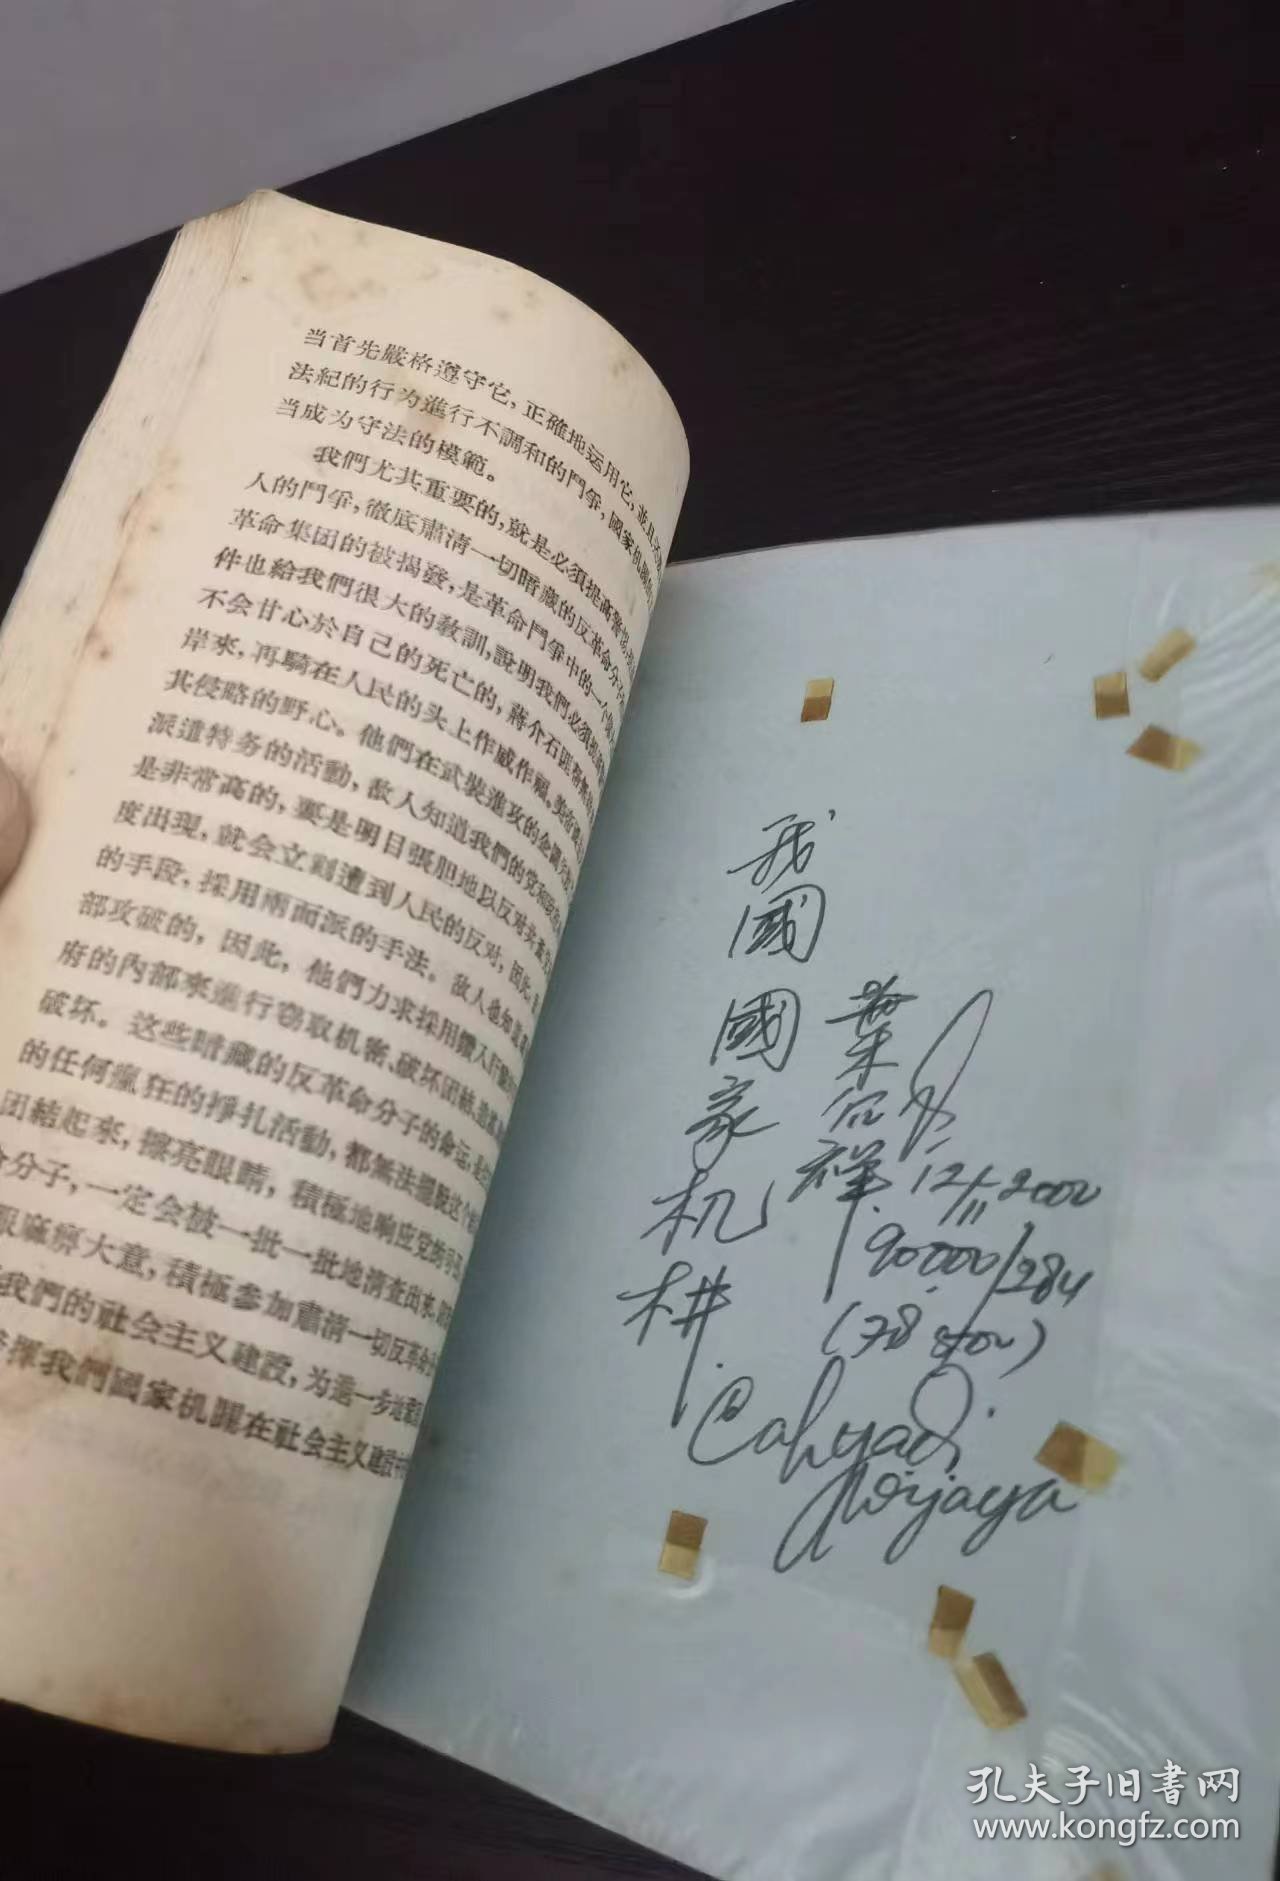 当首先嚴格遵守它，正確地运用它，並且
法紀的行为進行不調和的鬥爭，國家机
当成为守法的模範。
我們尤其重要的，就是必須提高警惕，
人的鬥爭，徹底肅清一切暗藏的反革命分子
革命集团的被揭發，是革命鬥爭中的一个
件也給我們很大的教訓，說明我們必須提高
不会甘心於自己的死亡的，蔣介石匪幫
岸來，再騎在人民的头上作威作福。美
其侵略的野心。他們在武裝進攻的企圖
派遣特务的活動，敌人知道我們的党和
是非常高的，要是明目張胆地以反对
度出現，就会立刻遭到人民的反对，因此，
的手段，採用兩面派的手法。敌人也知道
部攻破的，因此，他們力求採用鑽入
府的內部來進行窃取机密、破坏团結、
破坏。这些暗藏的反革命分子的命运，
的任何瘋狂的掙扎活動，都無法擺脫这个
团結起來，擦亮眼睛，積極地响应党的
分子，一定会被一批一批地清查出來，
服麻痹大意，積極参加肅清一切反革命
我們的社会主义建設，为進一步
揮我們國家机器在社会主义建設
我國國家机
葉
祥
12/11 2000
90000/284
Cahyadi
Wijaya
孔夫子旧書网
www.kongfz.com